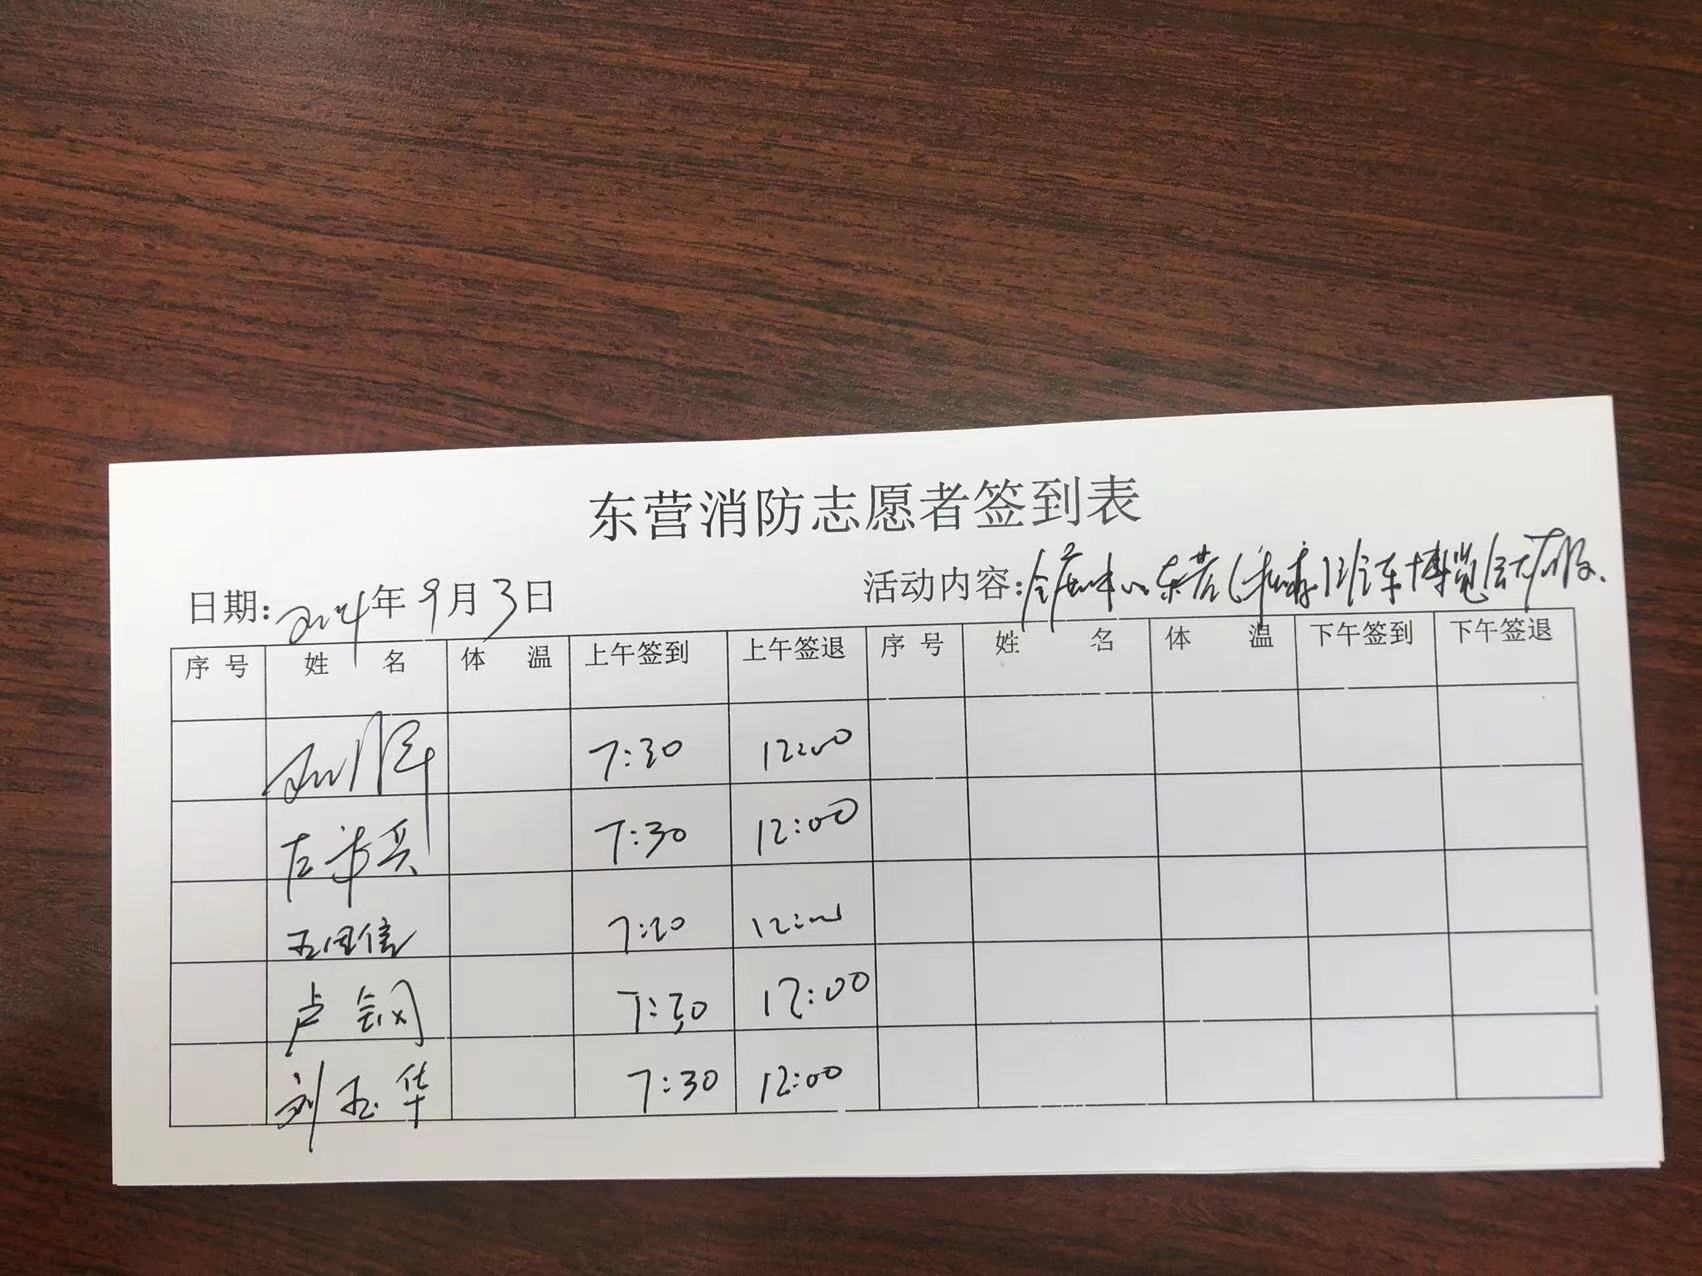 东营消防志愿者签到表
日期: 2024年9月3日 活动内容: 东营 车博览会
序号 姓名 体温 上午签到 上午签退 序号 姓名 体温 下午签到 下午签退
7:30 12:00
7:30 12:00
王国信 7:20 12:00
卢 7:30 12:00
刘玉华 7:30 12:00